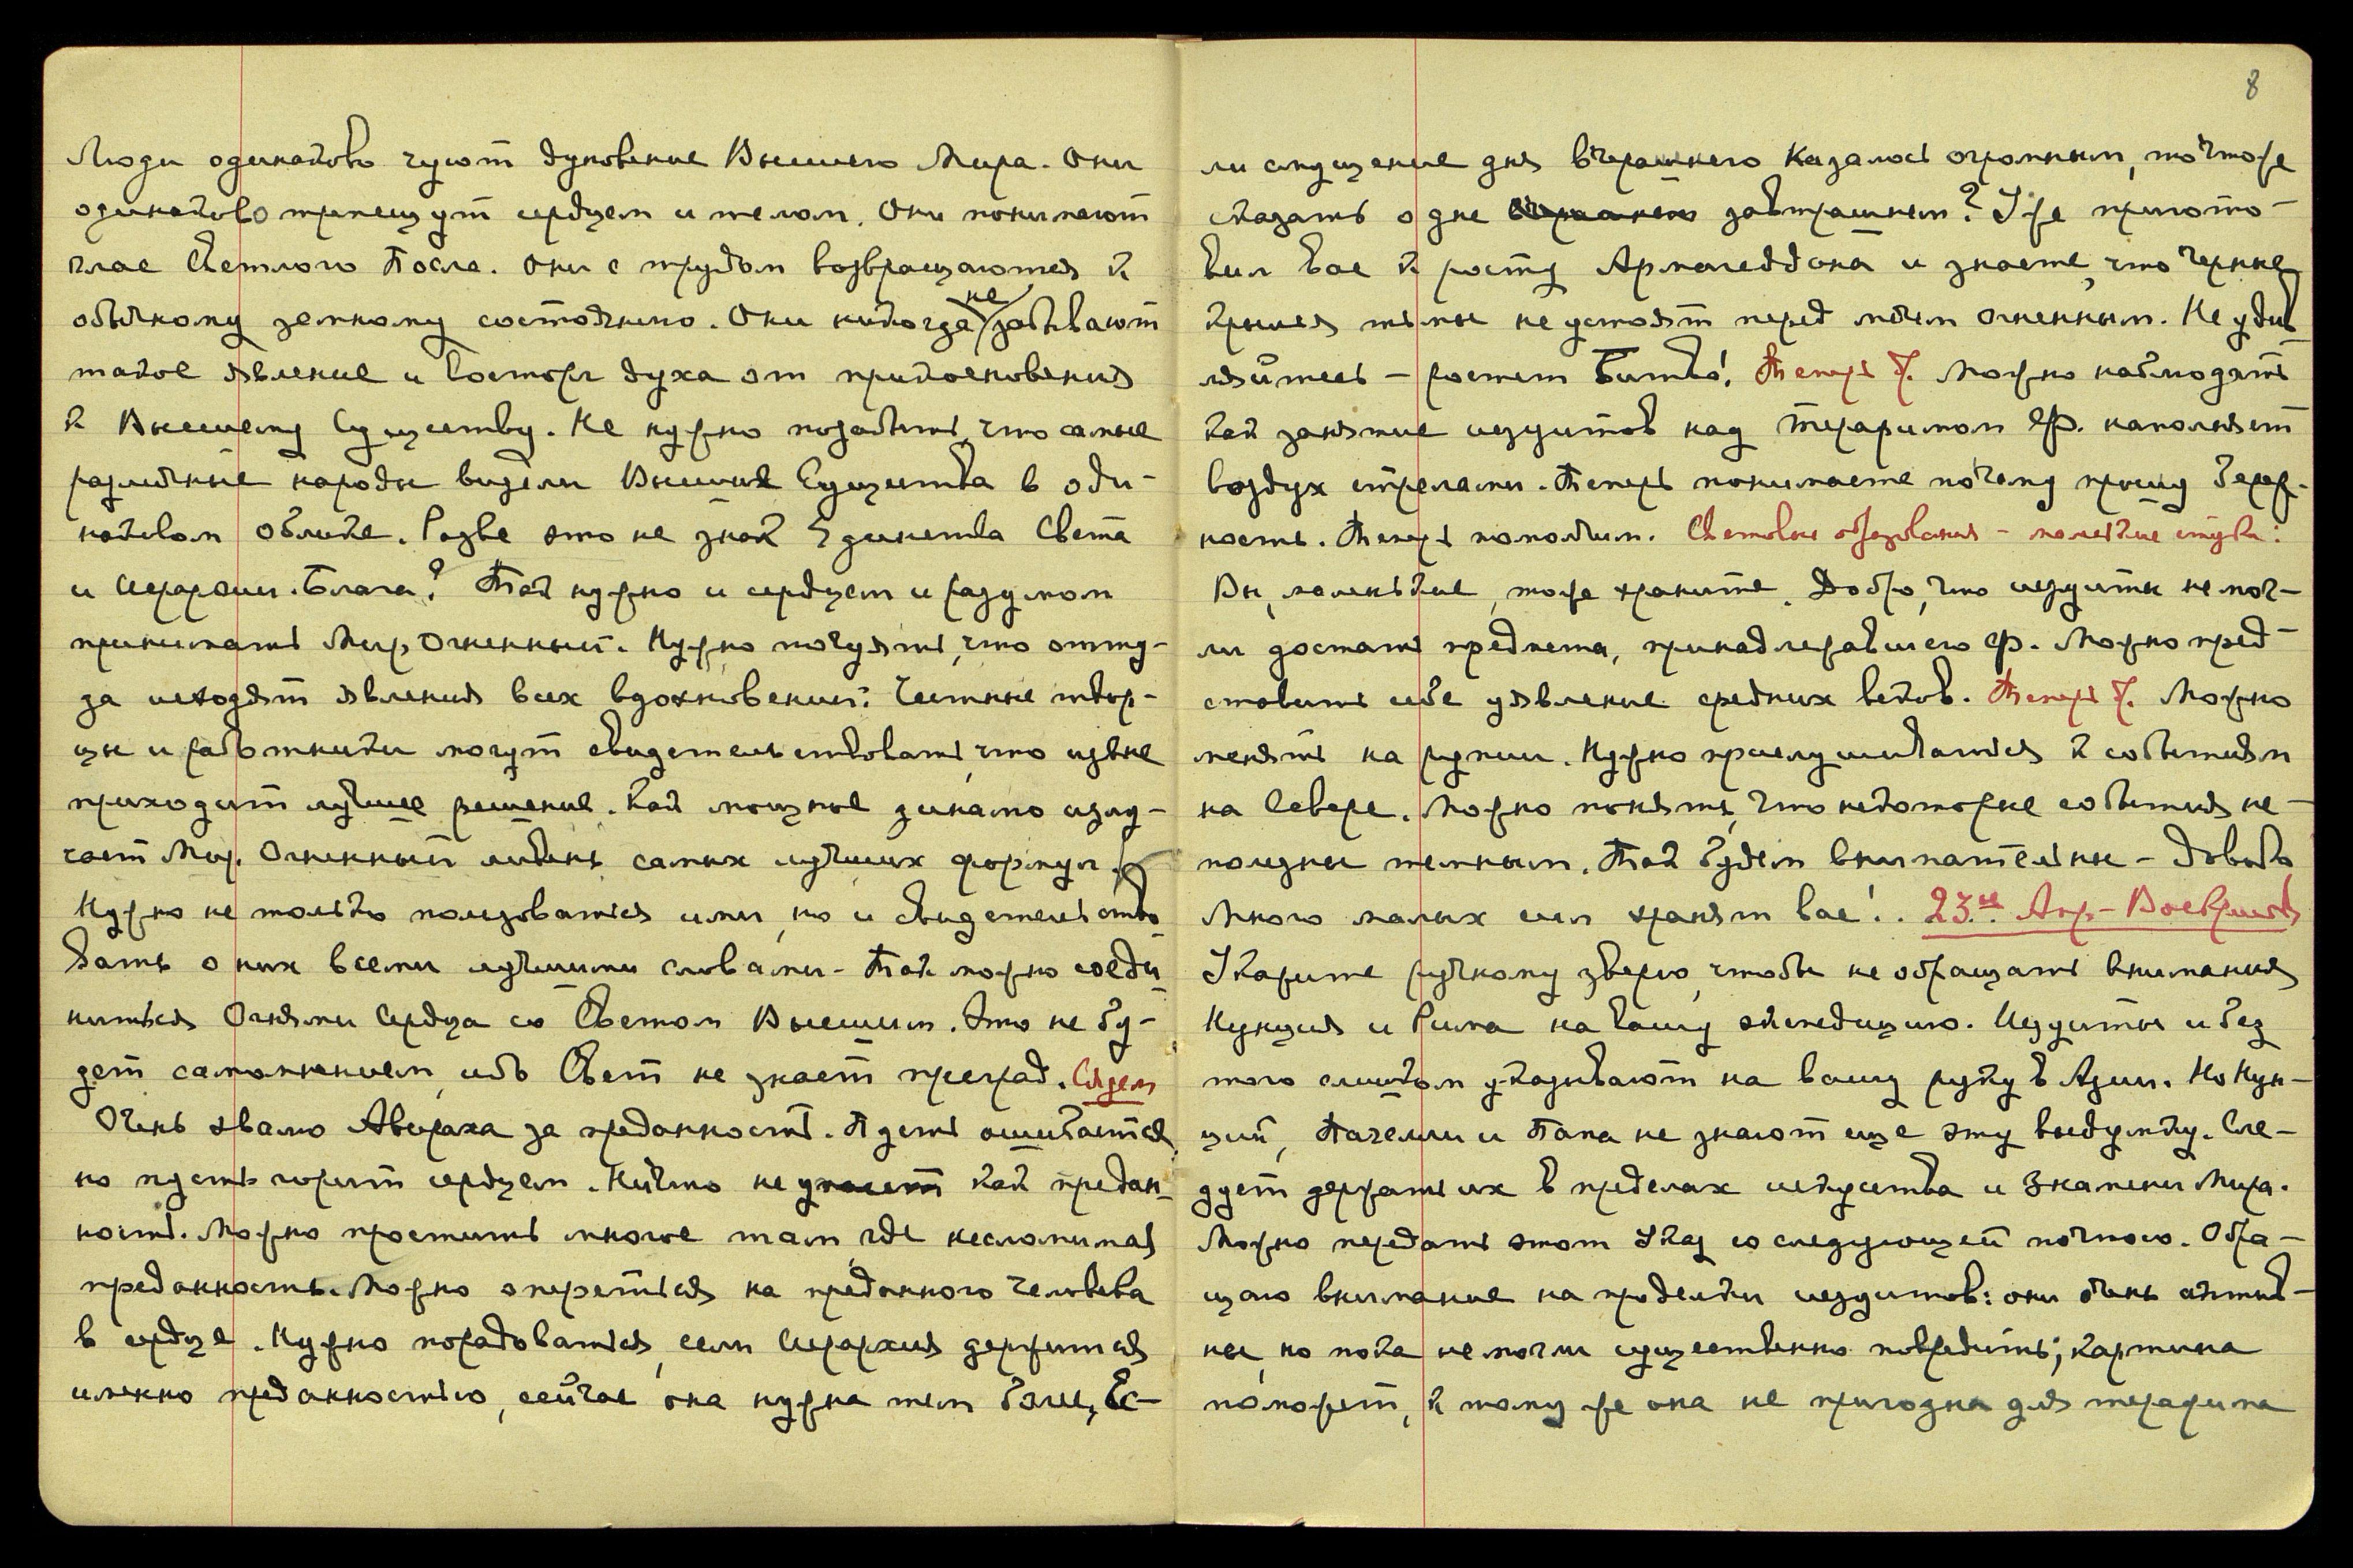 Люди одинаково чуют дуновение Высшего Мира. Они
одинаково трепещут сердцем и телом. Они понимают
глас Светлого Посла. Они с трудом возвращаются к
обычному земному состоянию. Они никогда не забывают
такое явление и восторг духа от прикосновения
к Высшему Существу. Не нужно позабыть, что самые
различные народы видели Высшия Существа в оди-
наковом облике. Разве это не знак Единства Света
и Иерархии Блага? Так нужно и сердцем и разумом
принимать Мир Огненный. Нужно почуять, что отту-
да исходят явления всех вдохновений. Честные твор-
цы и работники могут свидетельствовать, что извне
приходит лучшее решение. Как мощное динамо излу-
чает Мир Огненный ливень самых лучших формул.
Нужно не только пользоваться ими, но и свидетельство-
вать о них всеми лучшими словами - Так можно соеди-
ниться Огнями Сердца со Светом Высшим. Это не бу-
дет самомнением, ибо Свет не знает преград. Сядем
Очень хвалю Авираха за преданность. Пусть ошибается,
но пусть горит сердцем. Ничто не украсит как предан-
ность. Можно простить многое там, где несломимая
преданность. Можно опереться на преданного человека
в сердце. Нужно порадоваться, если Иерархия держится
именно преданностью, сейчас она нужна тем более, Ес-
8
ли смущение дня вчерашнего казалось огромным, то что же
сказать о дне завтрашнем? Уже пригото-
вил вас к росту Армагеддона и знаете, что черные
крылья тьмы не устоят перед мечем Огненным. Не удив-
ляйтесь - растет Битва! Теперь Ур. Можно наблюдать
как занятие иезуитов над терафимом Ф. наполняет
воздух стрелами. Теперь понимаете почему прошу береж-
ность. Теперь помолчим. Световые образования - полегкие стуки:
Вы, маленькие, тоже храните. Добро, что иезуиты не мог-
ли достать предмета, принадлежавшего Ф. Можно пред-
ставить себе уявление средних веков. Теперь Ур. Можно
менять на рупии. Нужно прислушиваться к событиям
на Севере. Можно понять, что некоторые события не-
полезны темным. Так будем внимательны - Довольно
Много малых сил хранят вас!. 23.ье Апр - Воскрешение
Укажите ручному зверю, чтобы не обращать внимания
Нунция и Рима на вашу экспедицию. Иезуиты и без
того слишком указывают на вашу руку в Азии. Но Нун-
ций, Пачелли и Папа не знают еще эту выдумку. Сле-
дует держать их в пределах искусства и Знамени Мира.
Можно передать этот Указ со следующей почтою. Обра-
щаю внимание на проделки иезуитов: они очень актив-
ны, но пока не могли существенно повредить; картина
поможет, к тому же она не пригодна для терафима